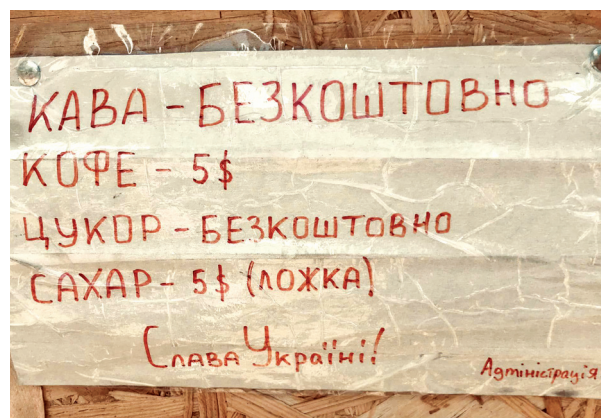 КАВА - БЕЗКОШТОВНО
КОФЕ - 5$
ЦУКОР - БЕЗКОШТОВНО
САХАР - 5$ (ЛОЖКА)
Слава Україні!
Адміністрація